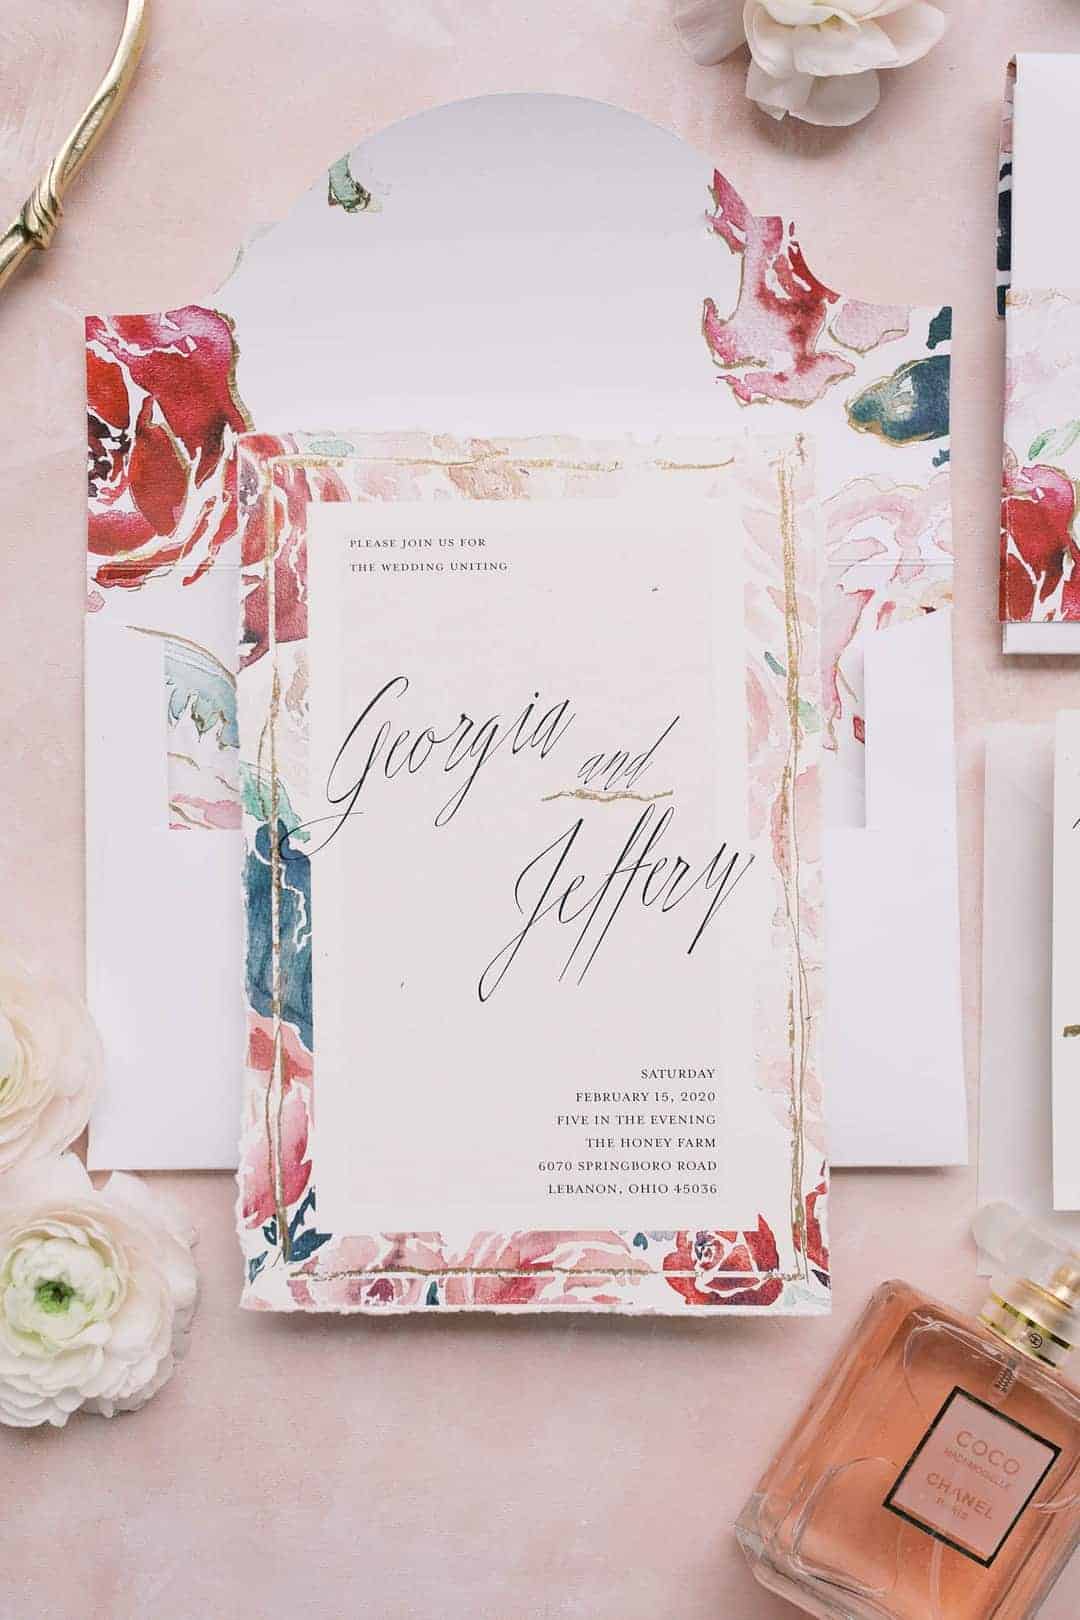 PLEASE JOIN US FOR
THE WEDDING UNITING
Georgia
and
Jeffery
SATURDAY
FEBRUARY 15, 2020
FIVE IN THE EVENING
THE HONEY FARM
6070 SPRINGBORO ROAD
LEBANON, OHIO 45036
COCO
MADEMOISELLE
CHANEL
PARIS